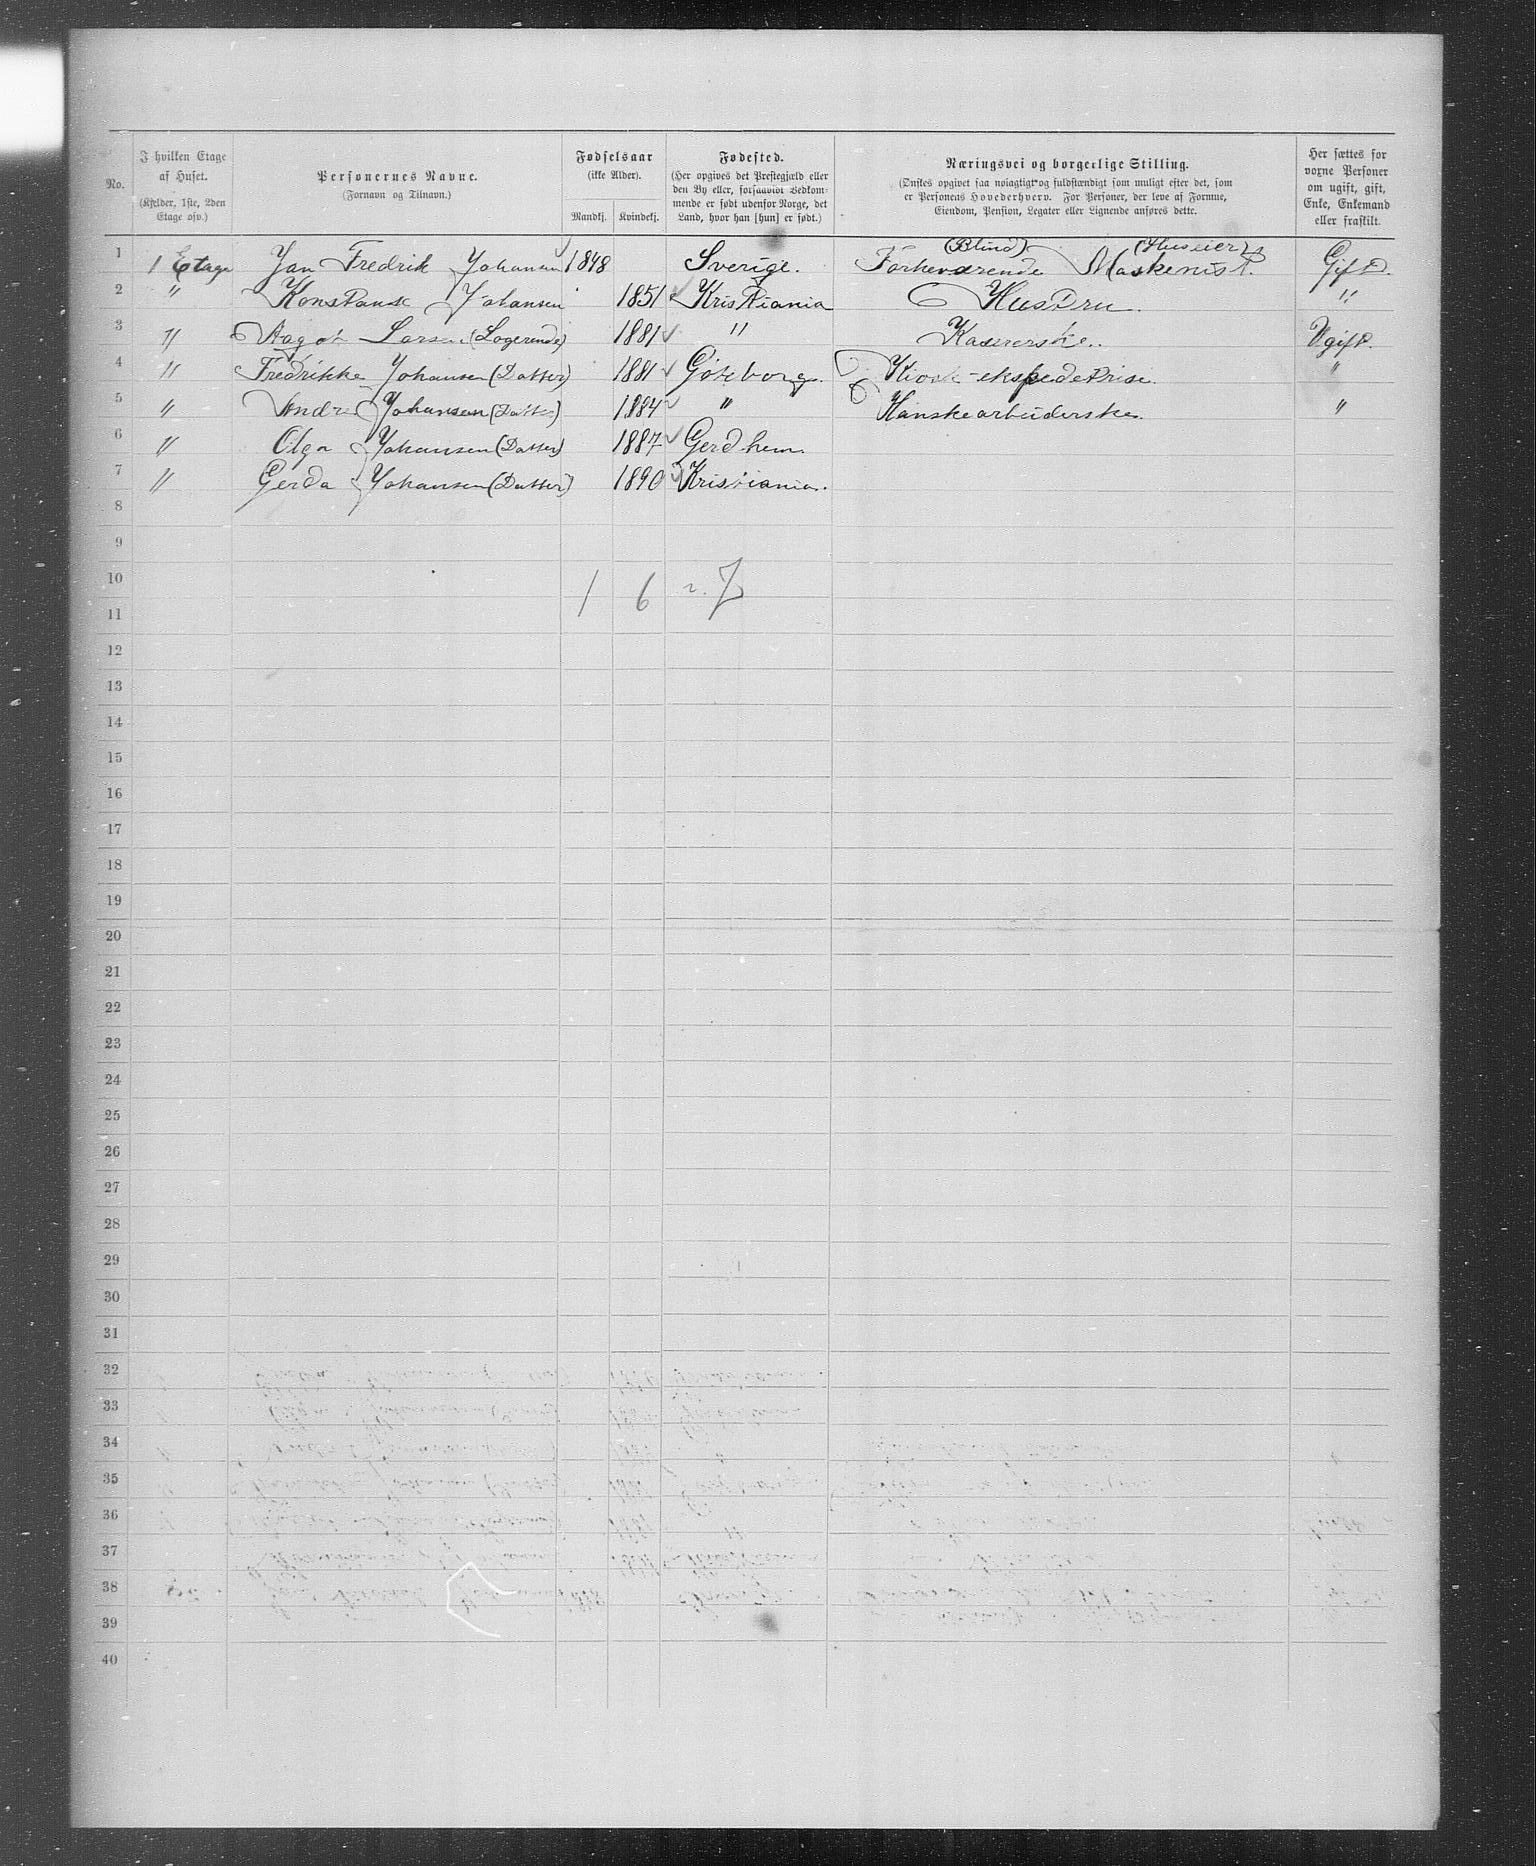 No.
I hvilken Etage af Huset. (Kjelder, 1ste, 2den Etage osv.)
Personernes Navne. (Fornavn og Tilnavn.)
Fødselsaar (ikke Alder). Mandkj. Kvindekj.
Fødested. (Her opgives det Prestegjæld eller den By eller, forsaavidt Vedkommende er født udenfor Norge, det Land, hvor han [hun] er født.)
Næringsvei og borgerlige Stilling. (Ønskes opgivet saa nøiagtigt og fuldstændigt som muligt efter det, som er Personens Hovederhverv. For Personer, der leve af Formue, Eiendom, Pension, Legater eller Lignende anføres dette.
Her sættes for voxne Personer om ugift, gift, Enke, Enkemand eller fraskilt.
(Blind) (Huseier)
1 1 Etage Jan Fredrik Johansen 1848 Sverige. Forheværende Maskenist. Gift.
2 " Konstanse Johansen 1851 Kristiania Hustru. "
3 " Aagot Larsen (Logerende) 1881 " Kasererske. Ugift.
4 " Fredrikke Johansen (Datter) 1881 Göteborg. Kiosk-ekspedetrise. "
5 " Andre Johansen (Datter) 1884 " Hanskearbeiderske. "
6 " Olga Johansen (Datter) 1887 Gerdhem
7 " Gerda Johansen (Datter) 1890 Kristiania.
8
9
10
1 6 7
11
12
13
14
15
16
17
18
19
20
21
22
23
24
25
26
27
28
29
30
31
32
33
34
35
36
37
38
39
40